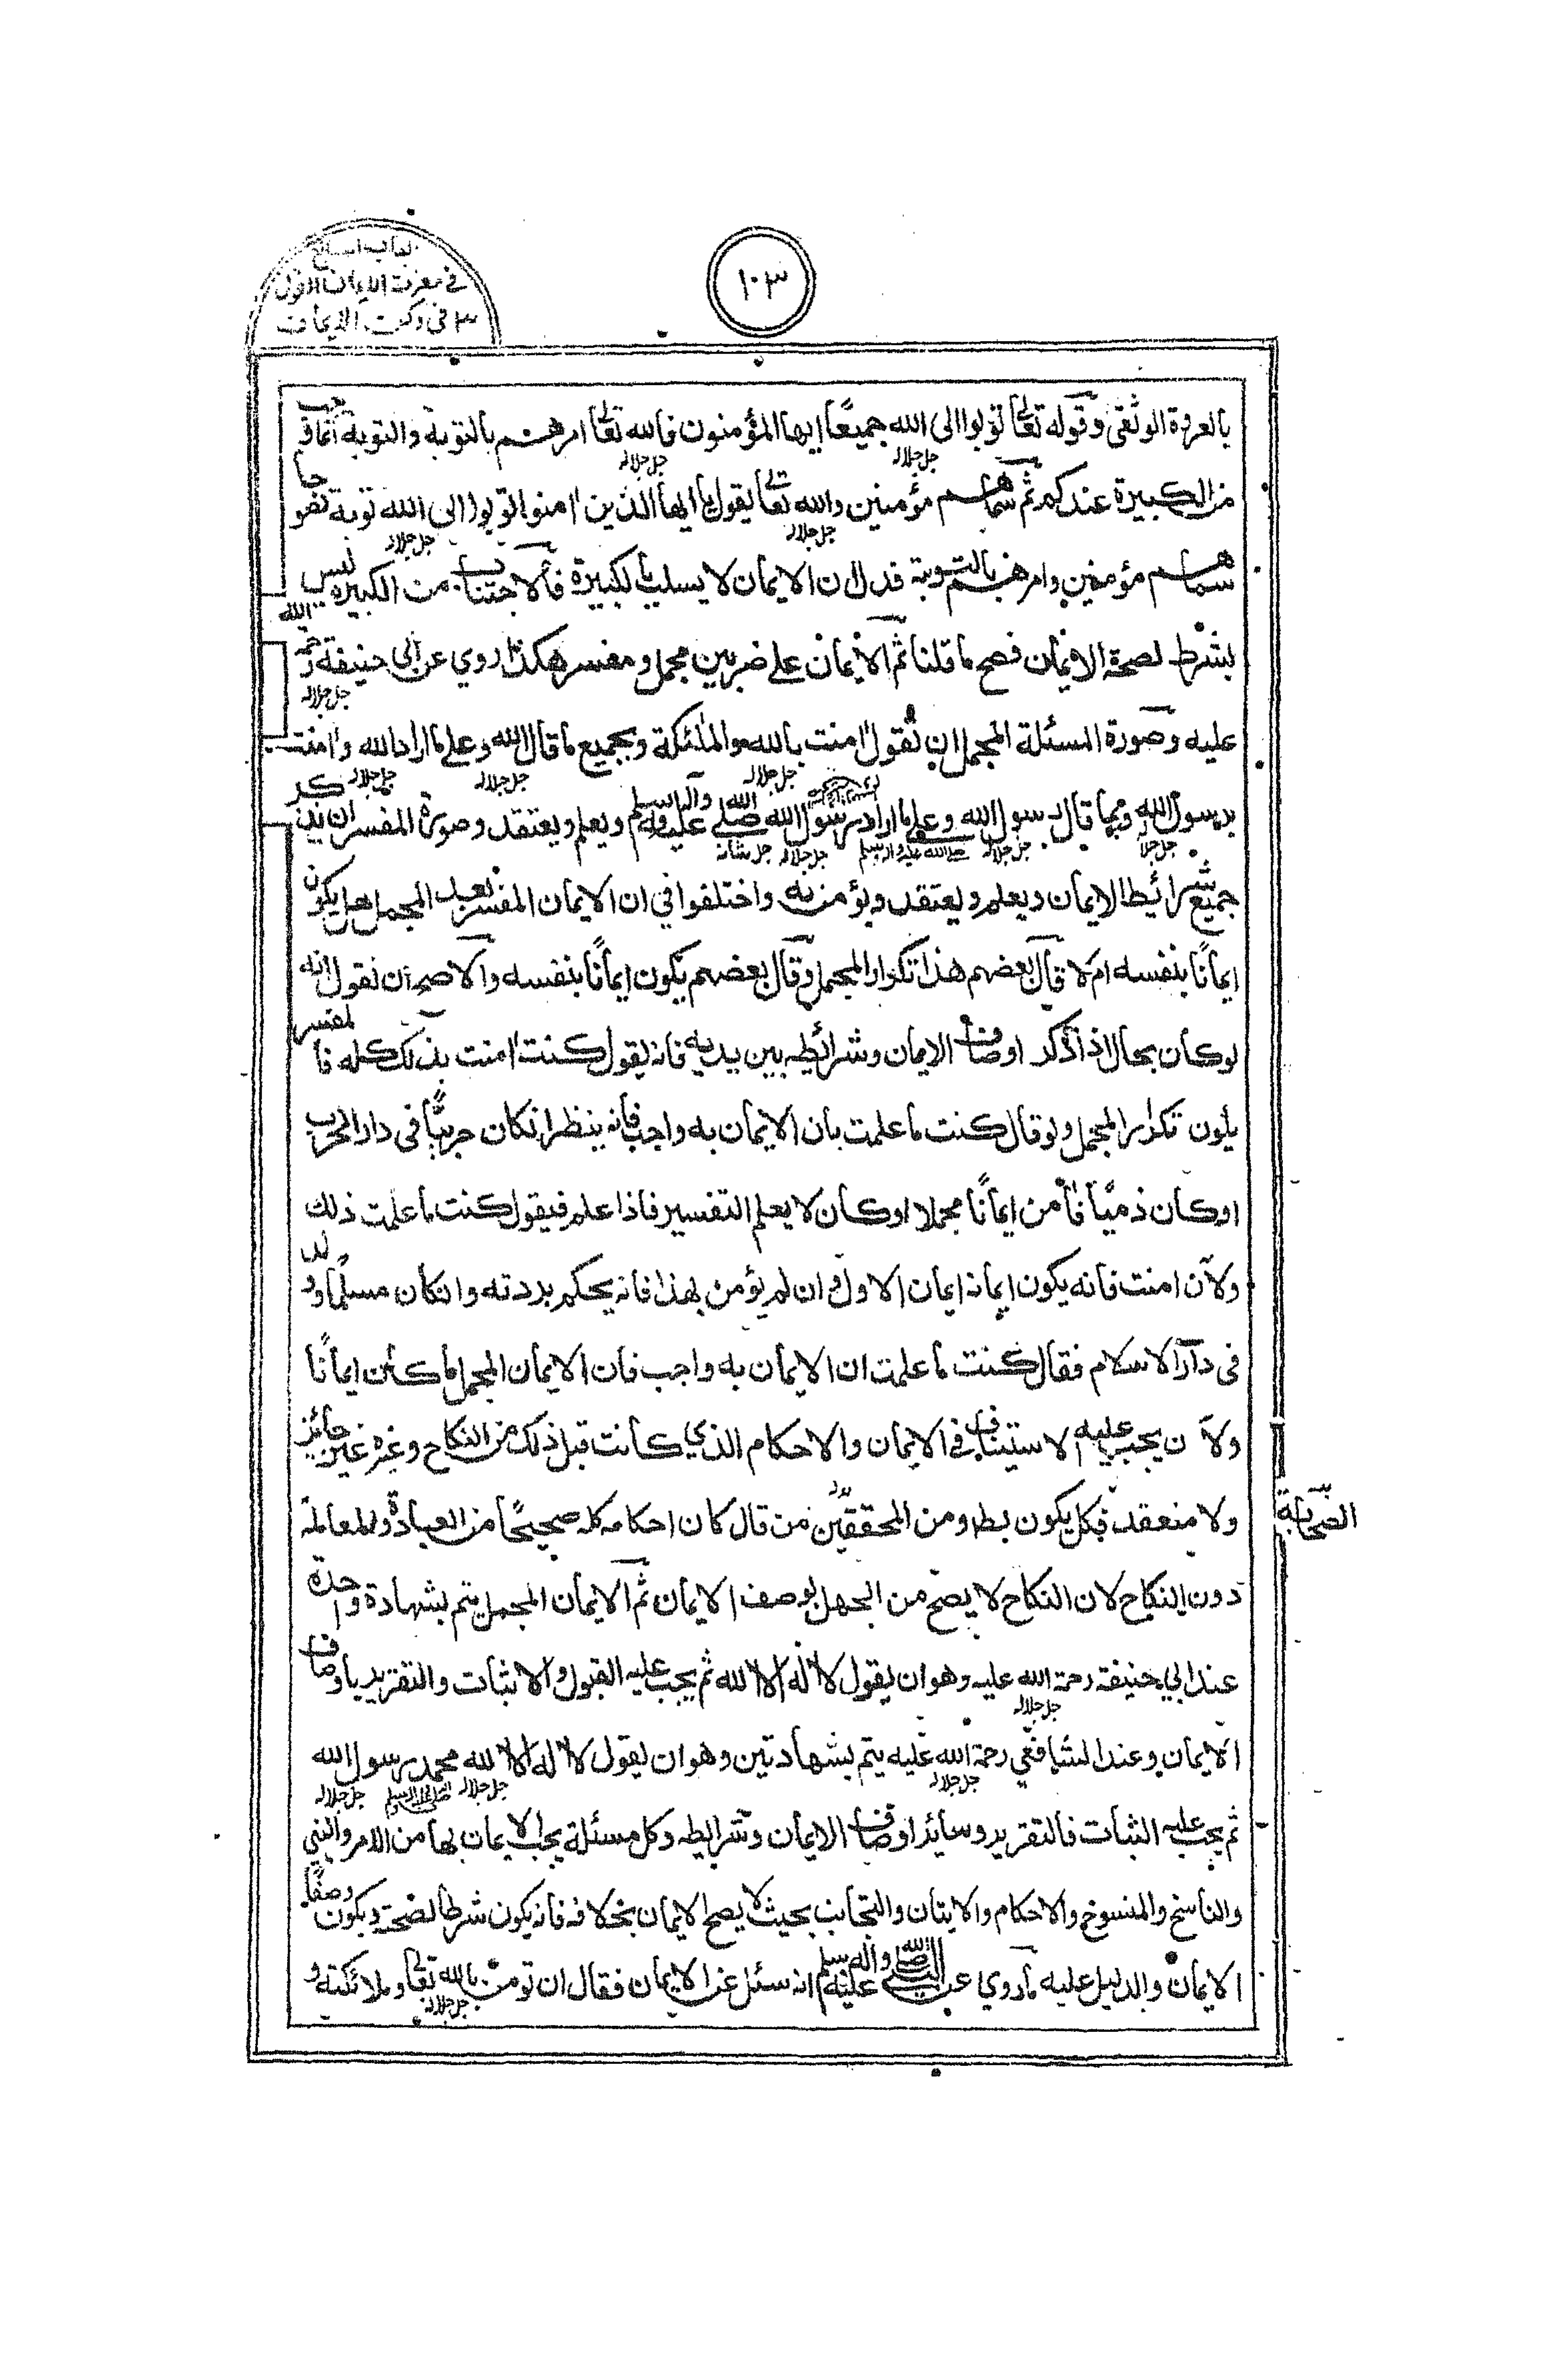 ١٠٣
الباب السابع
في معرفت الايمان القول
في ركن الايمان
بالعروة الوثقى وقوله تعالى توبوا الى الله جميعًا ايها المؤمنون فالله تعالى امرهم بالتوبة والتوبة انما تجب
من الكبيرة عندكم ثم سماهم مؤمنين والله تعالى يقول يا ايها الذين امنوا توبوا الى الله توبة نصوحا
سماهم مؤمنين وامرهم بالتوبة فدل ان الايمان لا يسلب بالكبيرة فالاجتناب من الكبيرة ليس
بشرط لصحة الايمان فصح ما قلنا ثم الايمان على ضربين مجمل ومفسر هكذا روي عن ابي حنيفة رحمة الله
عليه وصورة المسئلة المجمل ان تقول امنت بالله والملئكة وبجميع ما قال الله وعلى ما اراد الله وامنت
برسول الله وبما قال رسول الله وعلى ما اراد رسول الله صلى الله عليه واله وسلم ويعلم ويعتقد وصورة المفسر ان يذكر
جميع شرائط الايمان ويعلم ويعتقد ويؤمن به واختلفوا في ان الايمان المفسر بعد المجمل هل يكون
ايمانًا بنفسه ام لا قال بعضهم هذا تكرار المجمل وقال بعضهم يكون ايمانًا بنفسه والاصح ان نقول انه
لو كان بحال اذا ذكر اوصاف الايمان وشرائطه بين يديه فانه يقول كنت امنت بذلك كله فالمفسر
يكون تكرار المجمل ولو قال كنت ما علمت بان الايمان به واجب فانه ينظر انكان حربيًّا في دار الحرب
او كان ذميًّا فأمن ايمانًا مجملا او كان لا يعلم التفسير فاذا علم فيقول كنت ما علمت ذلك
ولأن امنت فانه يكون ايمانه ايمان الاول وان لم يؤمن بهذا فانه يحكم بردته وانكان مسلمًا ولد
في دار الاسلام فقال كنت ما علمت ان الايمان به واجب فان الايمان المجمل ما كان ايمانًا
ولأن يجب عليه الاستيناف في الايمان والاحكام الذي كانت قبل ذلك من النكاح وغيره غير جائز
ولا منعقد فكل يكون بطا ومن المحققين من قال كان احكامه كله صحيحًا من العبادة والمعاملة
دون النكاح لان النكاح لا يصح من الجهل بوصف الايمان ثم الايمان المجمل يتم بشهادة واحدة
عند ابي حنيفة رحمة الله عليه وهو ان يقول لا اله الا الله ثم يجب عليه القبول والاثبات والتقرير باوصاف
الايمان وعند الشافعي رحمة الله عليه يتم بشهادتين وهو ان يقول لا اله الا الله محمد رسول الله
ثم يجب عليه الثبات فالتقرير وسائر اوصاف الايمان وشرايطه وكل مسئلة يجب الايمان بها من الامر والنهي
والناسخ والمنسوخ والاحكام والاتيان والتجانب بحيث لا يصح الايمان بخلافه فانه يكون شرطا لصحة ويكون وصفًا
الايمان والدليل عليه ما روي عن النبي صلى الله عليه واله وسلم انه سئل عن الايمان فقال ان تومن بالله تعالى وملائكته و
الصحابة